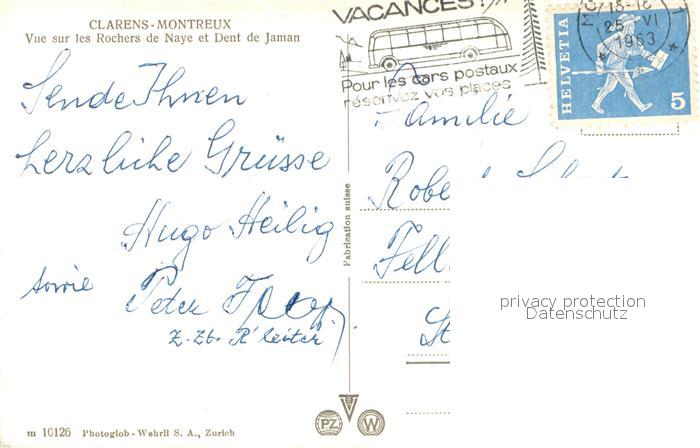 CLARENS-MONTREUX
Vue sur les Rochers de Naye et Dent de Jaman
Sende Ihnen
herzliche Grüsse
Hugo Heilig
sowie Peter
z. Zt.
m 10126 Photoglob-Wehrli S. A., Zurich
Fabrication suisse
VACANCES!
Pour les cars postaux
réservez vos places
25 VI
1963
HELVETIA
5
Familie
privacy protection
Datenschutz
PZ
W